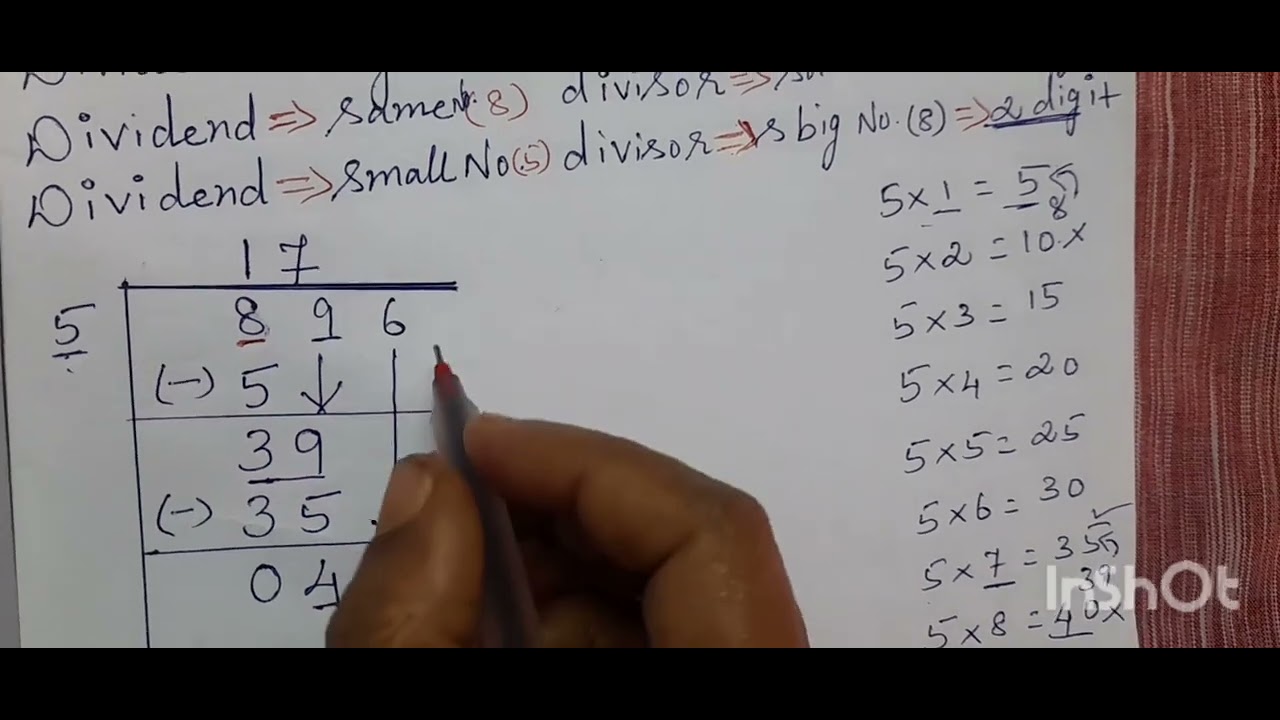 Dividend => same No.(8) divisor =>
Dividend => small No(5) divisor => is big No. (8) => 2 digit
17
5
8 9 6
(-) 5 ↓
3 9
(-) 3 5
0 4
5 × 1 = 5
8
5 × 2 = 10 ×
5 × 3 = 15
5 × 4 = 20
5 × 5 = 25
5 × 6 = 30
5 × 7 = 35 ✓
39
5 × 8 = 40 ×
InShOt